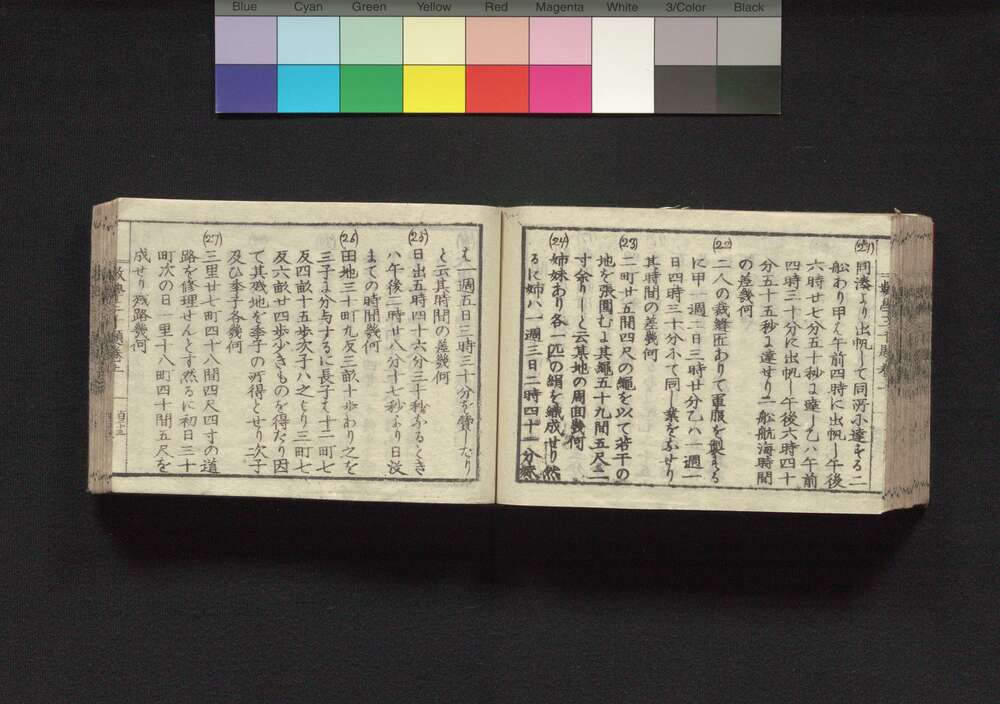 Blue Cyan Green Yellow Red Magenta White 3/Color Black
(21)
同湊より出帆して同所に達する二
舩あり甲は午前四時に出帆し午後
六時廿七分五十秒に達し乙ハ午前
四時三十分に出帆し午後六時四十
分五十五秒に達せり二舩航海時間
の差幾何
(22)
二人の裁縫匠ありて軍服を製する
に甲一週二日三時廿分乙ハ一週一
日四時三十分にて同し業をなせり
其時間の差幾何
(23)
二町廿五間四尺の繩を以て若干の
地を張圍むに其繩五十九間五尺二
寸余りしと云某地の周圍幾何
(24)
姉妹あり各一匹の絹を織成せり然
るに姉ハ一週三日二時四十一分妹
は一週五日三時三十分を費したり
と云其時間の差幾何
(25)
日出五時四十六分三十秒なるとき
ハ午後二時廿八分十七秒より日没
まての時間幾何
(26)
田地三十町九反三畝十歩あり之を
三子に分与するに長子は十二町七
反四畝十五歩次子ハ之より三町七
反六畝廿四歩少きものを得たり因
て其残地を季子の所得とせり次子
及ひ季子各幾何
(27)
三里廿七町四十八間四尺四寸の道
路を修理せんとす然るに初日三十
町次の日一里十八町四十間五尺を
成せり残路幾何
百十五